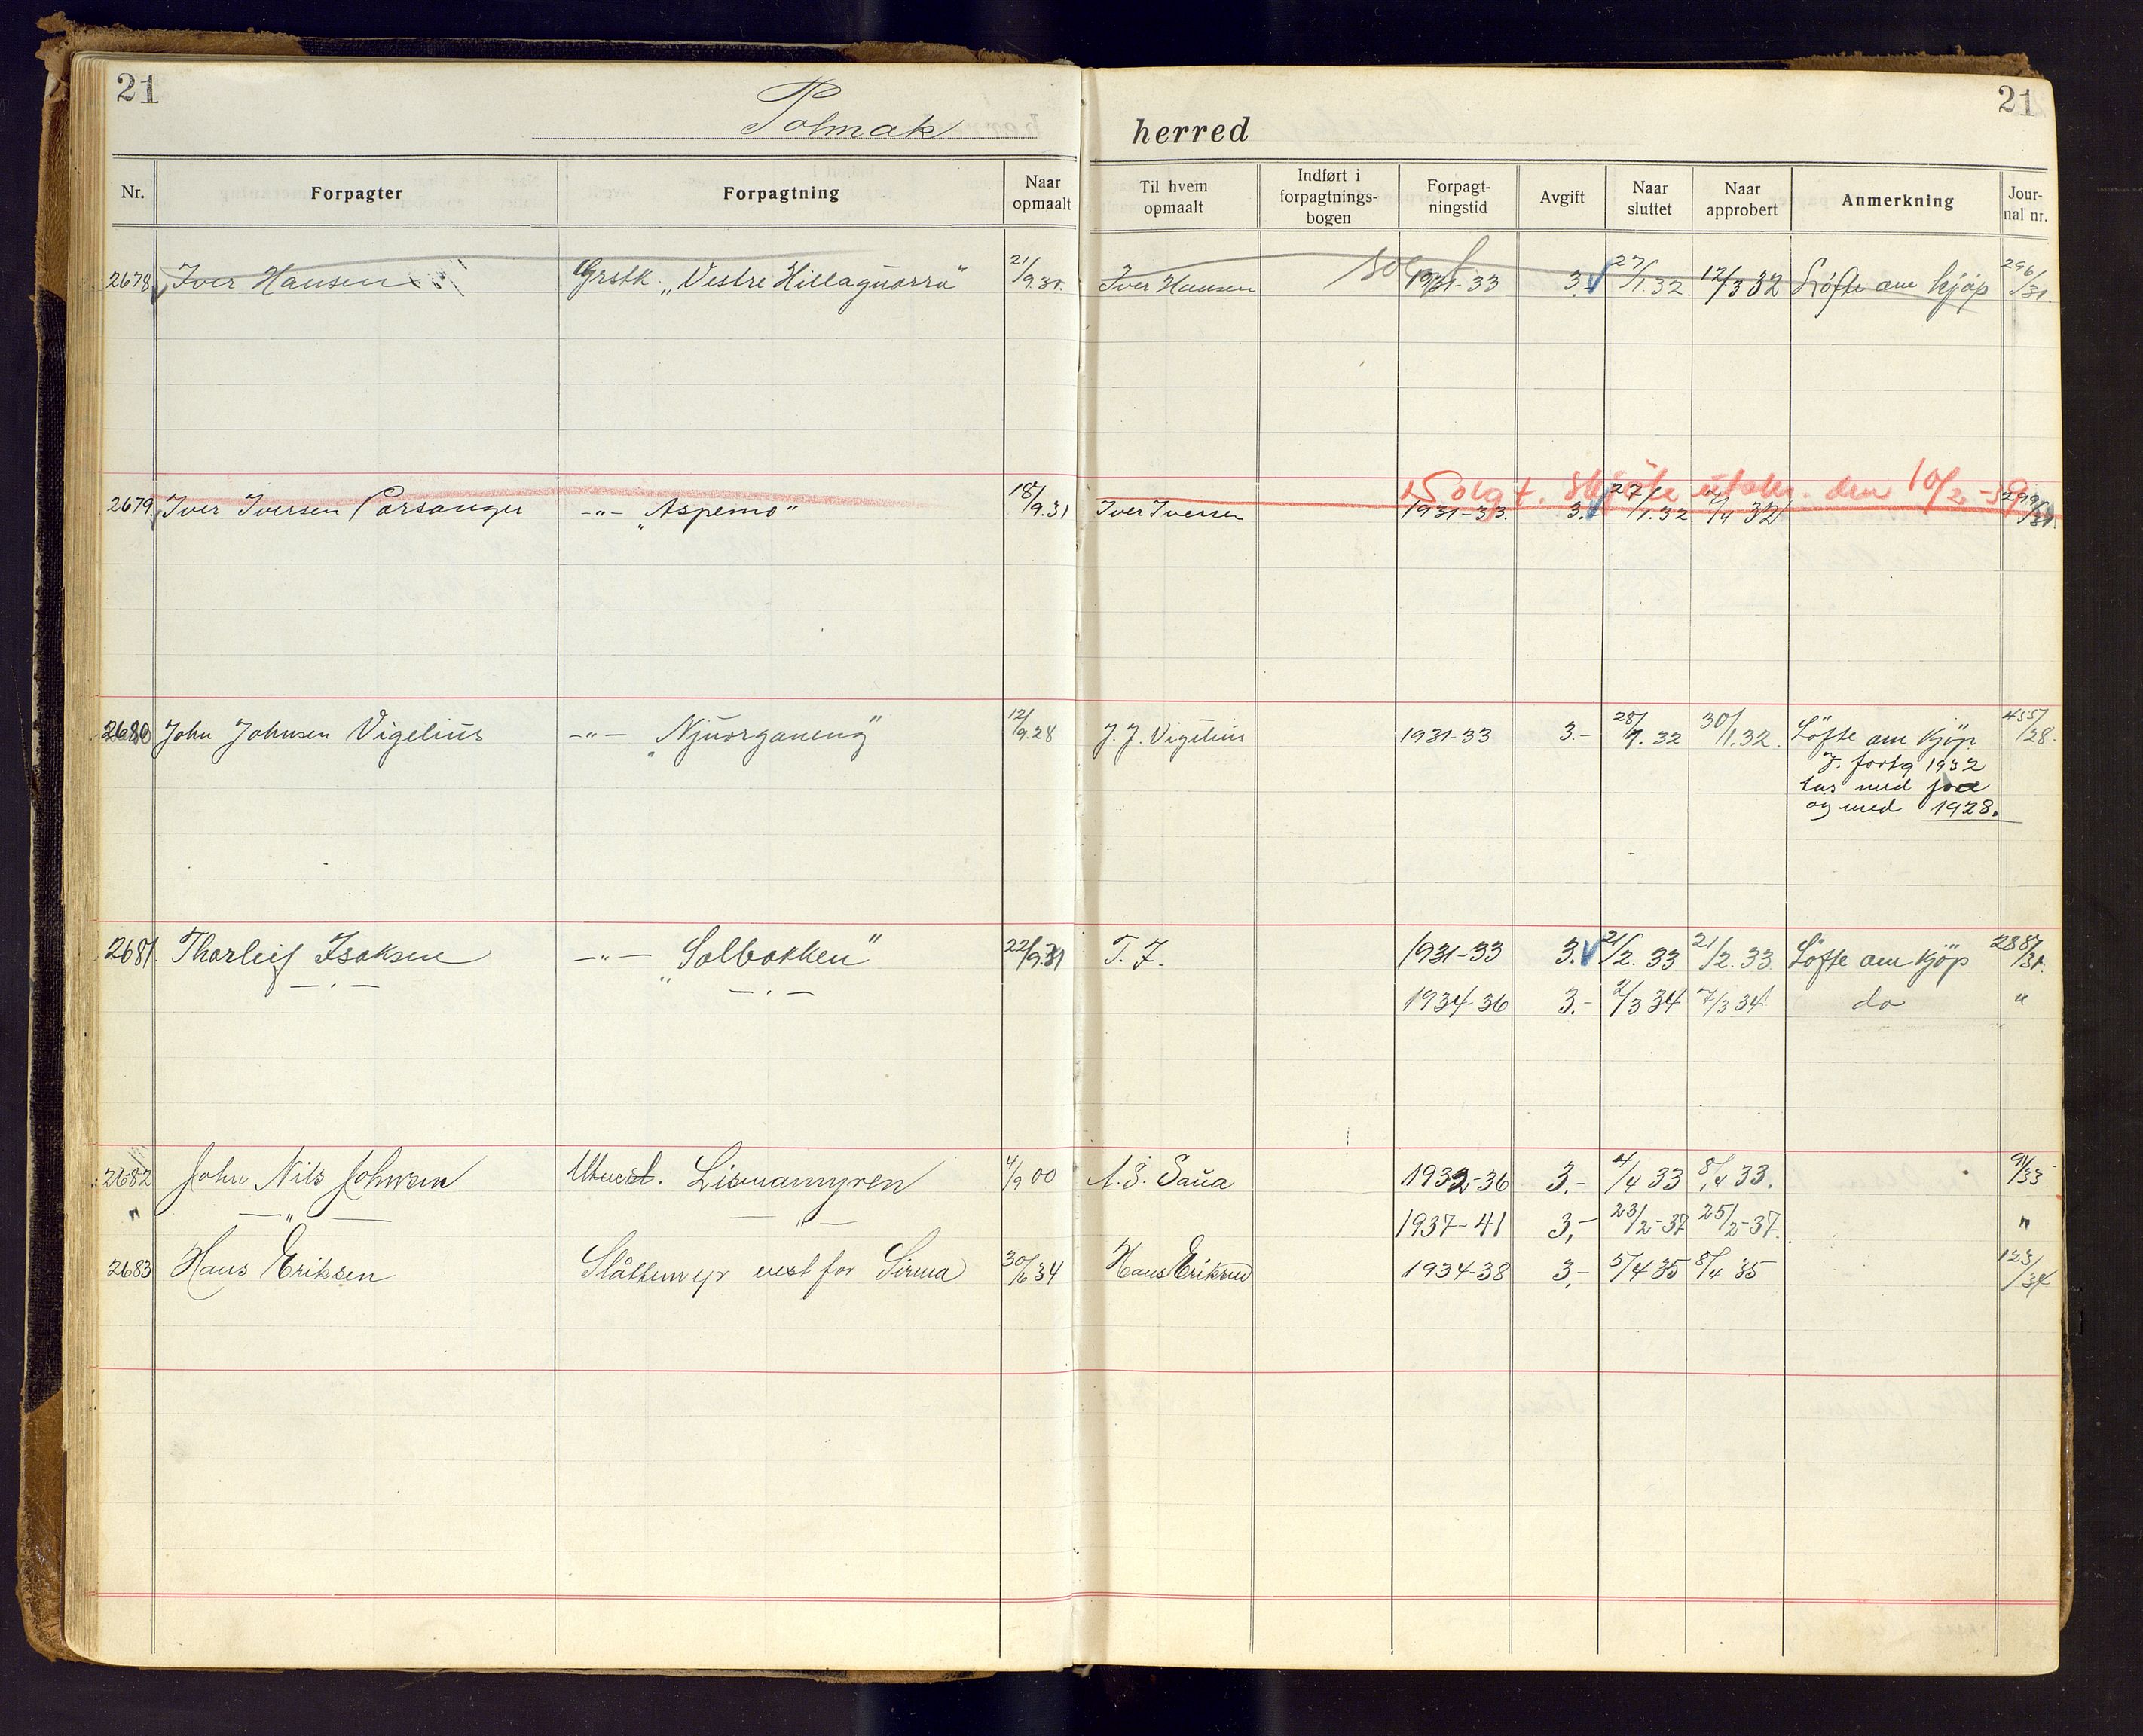 21 Polmak herred 21
Nr. Forpagter Forpagtning Naar opmaalt Til hvem opmaalt Indført i forpagtnings-bogen Forpagt-ningstid Avgift Naar sluttet Naar approbert Anmerkning Jour-nal nr.
2678 Iver Hansen Grstk. „Vestre Hillaguorra" 21/9.31. Iver Hansen 1931-33 3.- 27/1.32. 12/3 32 Løfte om kjøp 296/31.
Solgt. Skjøte utste. den 10/2-39
2679. Iver Iversen Porsanger -"- „Aspemo" 18/9.31 Iver Iversen 1931-33. 3.- 27/1.32. 7/4 32 299/31.
2680 John Johnsen Vigelius -"- „Njuorganeng" 12/9.28 J. J. Vigelius 1931-33 3.- 28/1.32 30/1.32. Løfte om kjøp 455/28.
J. fortg 1932
tas med fra
og med 1928.
2681. Thorleif Isaksen -"- „Solbakken" 22/9.31 T. I. 1931-33 3. 21/2.33 21/2.33 Løfte om kjøp 288/31.
-"- -"- 1934-36 3.- 2/3 34 7/3 34 do "
2682 John Nils Johnsen Utmst. Lismamyren 4/9 00 A. S. Saua 1932-36 3.- 4/4 33 8/4 33. 91/33
" -"- -"- 1937-41 3,- 23/2-37 25/2-37. "
2683 Hans Eriksen Slåttemyr vest for Sirma 30/6 34 Hans Eriksen 1934-38 3,- 5/4 35 8/4 35 123/34